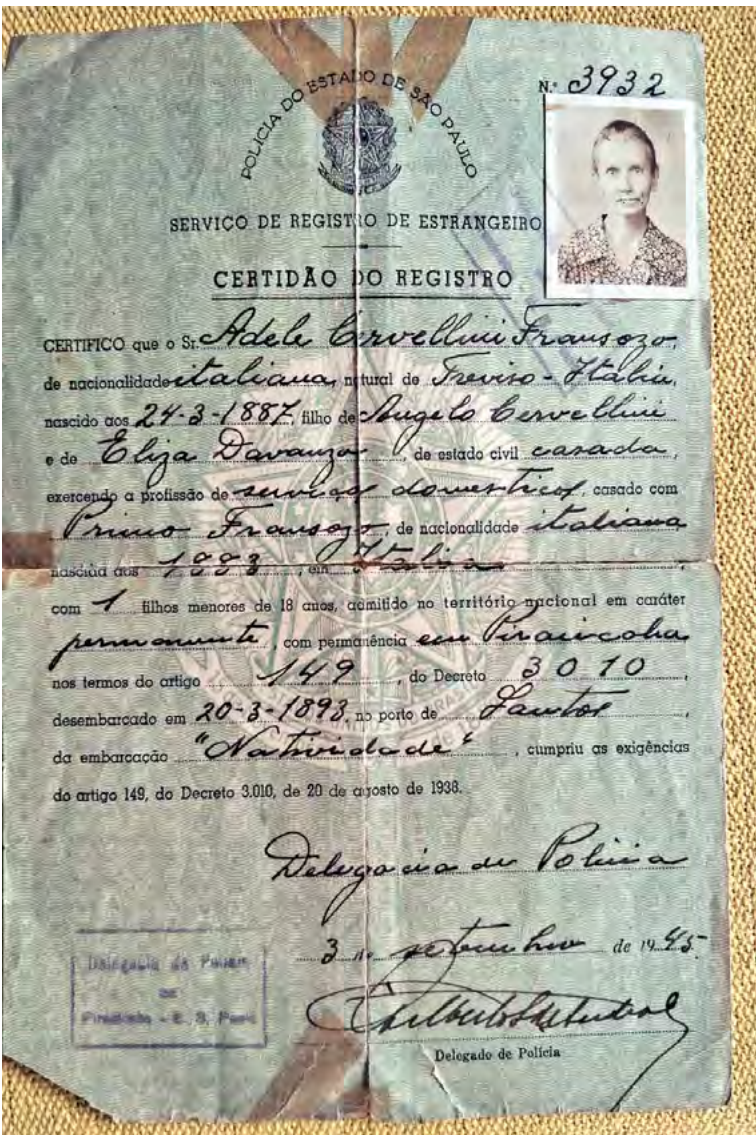 POLICIA DO ESTADO DE SÃO PAULO
N.º 3932
SERVIÇO DE REGISTRO DE ESTRANGEIRO
CERTIDÃO DO REGISTRO
CERTIFICO que o Sr. Adele Cervellini Fransozo,
de nacionalidade italiana, natural de Treviso - Italia,
nascido aos 24-3-1887, filho de Angelo Cervellini
e de Eliza Davanzo, de estado civil casada,
exercendo a profissão de serviços domesticos, casado com
Primo Fransozo, de nacionalidade italiana
nascida aos 1883, em Italia,
com 1 filhos menores de 18 anos, admitido no território nacional em caráter
permanente, com permanência em
nos termos do artigo 149, do Decreto 3010,
desembarcado em 20-3-1893, no porto de Santos,
da embarcação "Natividade", cumpriu as exigências
do artigo 149, do Decreto 3.010, de 20 de agosto de 1938.
Delegacia de Policia
3 de setembro de 1945.
Delegacia de
E. S.
Delegado de Polícia